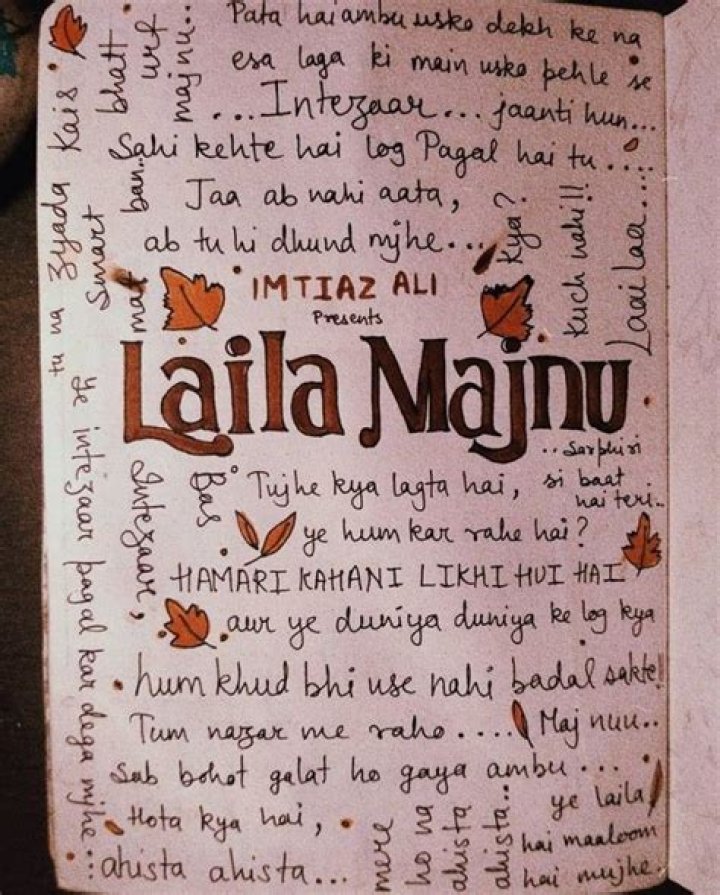 Pata hai ambu usko dekh ke na
esa laga ki main usko pehle se
...Intezaar... jaanti hun...
Sahi kehte hai log Pagal hai tu....
Jaa ab nahi aata,
ab tu hi dhund mjhe...
Kya?
Kuch nahi!!
Laailaa....
tu na zyada Kais
Smart
bhatt
urf
majnu..
mat ban..
IMTIAZ ALI
Presents
Laila Majnu
..Sarphiri
si baat
hai teri..
Bas
Intezaar,
ye intezaar pagal kar dega mjhe...
Tujhe kya lagta hai,
ye hum kar rahe hai?
HAMARI KAHANI LIKHI HUI HAI
aur ye duniya duniya ke log kya
hum khud bhi use nahi badal sakte!
Tum nazar me raho.... Maj nuu..
Sab bohot galat ho gaya ambu...
Hota kya hai,
ahista ahista...
mere
ho na
ahista
ahista..
ye laila
hai maaloom
hai mujhe.